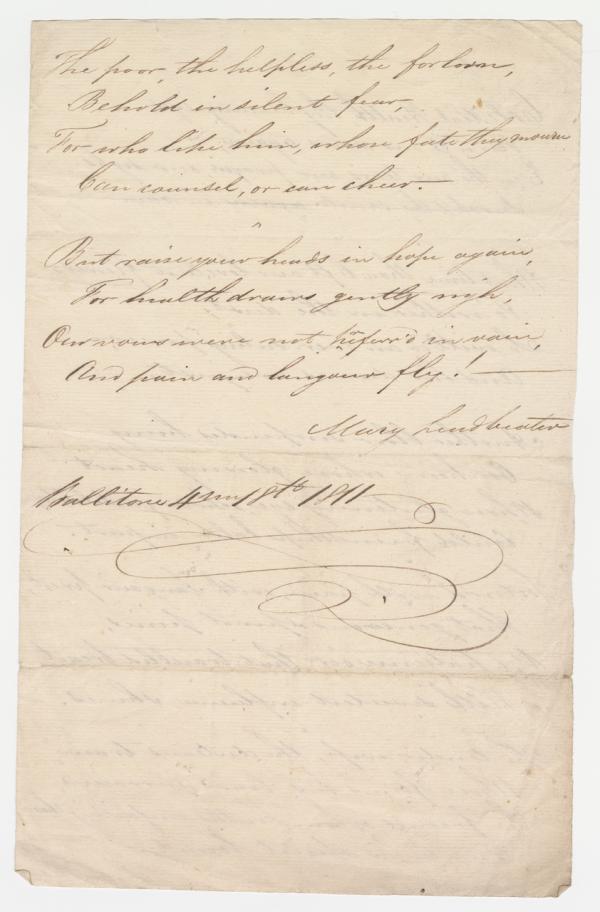 The poor, the helpless, the forlorn,
Behold in silent fear,
For who like him, whose fate they mourn
Can counsel, or can cheer.—
But raise your heads in hope again,
For health draws gently nigh,
Our vows were not prefer'd in vain,
And pain and langour fly! —
Mary Leadbeater
Ballitore 4 mo 18th 1811